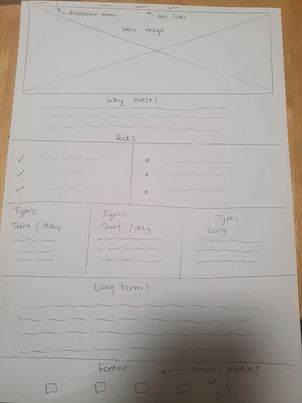 dropdown menu
nav links
Hero Image
Why Invest?
Risks
Types
Short / day
Types
Short / day
Types
Long
Long term!
Footer
Social media?